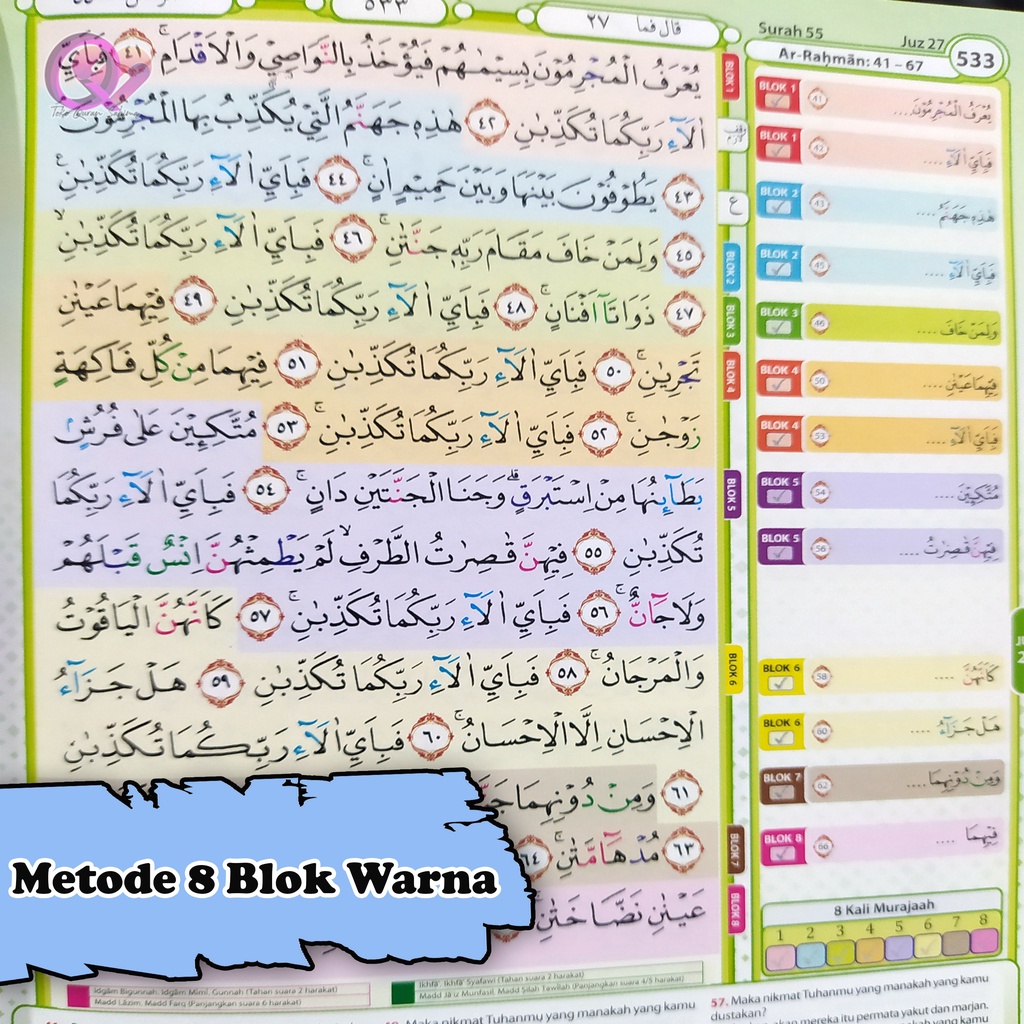 ٥٣٣
قال فما ٢٧
Surah 55
Juz 27
533
Ar-Raḥmān: 41 – 67
يُعْرَفُ الْمُجْرِمُوْنَ بِسِيْمٰهُمْ فَيُؤْخَذُ بِالنَّوَاصِيْ وَالْاَقْدَامِۚ ٤١ فَبِاَيِّ
اٰلَاۤءِ رَبِّكُمَا تُكَذِّبٰنِ ٤٢ هٰذِهٖ جَهَنَّمُ الَّتِيْ يُكَذِّبُ بِهَا الْمُجْرِمُوْنَۘ
٤٣ يَطُوْفُوْنَ بَيْنَهَا وَبَيْنَ حَمِيْمٍ اٰنٍۚ ٤٤ فَبِاَيِّ اٰلَاۤءِ رَبِّكُمَا تُكَذِّبٰنِ ࣖ
٤٥ وَلِمَنْ خَافَ مَقَامَ رَبِّهٖ جَنَّتٰنِۚ ٤٦ فَبِاَيِّ اٰلَاۤءِ رَبِّكُمَا تُكَذِّبٰنِۙ
٤٧ ذَوَاتَآ اَفْنَانٍۚ ٤٨ فَبِاَيِّ اٰلَاۤءِ رَبِّكُمَا تُكَذِّبٰنِ ٤٩ فِيْهِمَا عَيْنٰنِ
تَجْرِيٰنِۚ ٥٠ فَبِاَيِّ اٰلَاۤءِ رَبِّكُمَا تُكَذِّبٰنِ ٥١ فِيْهِمَا مِنْ كُلِّ فَاكِهَةٍ
زَوْجٰنِۚ ٥٢ فَبِاَيِّ اٰلَاۤءِ رَبِّكُمَا تُكَذِّبٰنِۚ ٥٣ مُتَّكِـِٕيْنَ عَلٰى فُرُشٍۢ
بَطَاۤىِٕنُهَا مِنْ اِسْتَبْرَقٍۗ وَجَنَا الْجَنَّتَيْنِ دَانٍۚ ٥٤ فَبِاَيِّ اٰلَاۤءِ رَبِّكُمَا
تُكَذِّبٰنِ ٥٥ فِيْهِنَّ قٰصِرٰتُ الطَّرْفِۙ لَمْ يَطْمِثْهُنَّ اِنْسٌ قَبْلَهُمْ
وَلَا جَاۤنٌّۚ ٥٦ فَبِاَيِّ اٰلَاۤءِ رَبِّكُمَا تُكَذِّبٰنِۚ ٥٧ كَاَنَّهُنَّ الْيَاقُوْتُ
وَالْمَرْجَانُۚ ٥٨ فَبِاَيِّ اٰلَاۤءِ رَبِّكُمَا تُكَذِّبٰنِ ٥٩ هَلْ جَزَاۤءُ
الْاِحْسَانِ اِلَّا الْاِحْسَانُۚ ٦٠ فَبِاَيِّ اٰلَاۤءِ رَبِّكُمَا تُكَذِّبٰنِ
٦١ وَمِنْ دُوْنِهِمَا
٦٣ مُدْهَاۤمَّتٰنِۚ ٦٤
عَيْنٰنِ نَضَّاخَتٰنِۚ
BLOK 1
وقف لازم
ع
BLOK 2
BLOK 3
BLOK 4
BLOK 5
BLOK 6
BLOK 7
BLOK 8
BLOK 1 41 يُعْرَفُ الْمُجْرِمُوْنَ....
BLOK 1 42 فَبِاَيِّ اٰلَاۤءِ ....
BLOK 2 43 هٰذِهٖ جَهَنَّمُ ....
BLOK 2 45 فَبِاَيِّ اٰلَاۤءِ ....
BLOK 3 46 وَلِمَنْ خَافَ ....
BLOK 4 50 فِيْهِمَا عَيْنٰنِ ....
BLOK 4 53 فَبِاَيِّ اٰلَاۤءِ ....
BLOK 5 54 مُتَّكِـِٕيْنَ ....
BLOK 5 56 فِيْهِنَّ قٰصِرٰتُ ....
BLOK 6 58 كَاَنَّهُنَّ ....
BLOK 6 60 هَلْ جَزَاۤءُ ....
BLOK 7 62 وَمِنْ دُوْنِهِمَا ....
BLOK 8 66 فِيْهِمَا ....
8 Kali Murajaah
1 2 3 4 5 6 7 8
Metode 8 Blok Warna
Idgām Bigunnah. Idgām Mīmī. Gunnah (Tahan suara 2 harakat)
Madd Lāzim. Madd Farq (Panjangkan suara 6 harakat)
Ikhfā'. Ikhfā' Syafawi (Tahan suara 2 harakat)
Madd Jā'iz Munfasil. Madd Ṣilah Ṭawīlah (Panjangkan suara 4/5 harakat)
Maka nikmat Tuhanmu yang manakah yang kamu
57. Maka nikmat Tuhanmu yang manakah yang kamu
dustakan?
mereka itu permata yakut dan marjan.